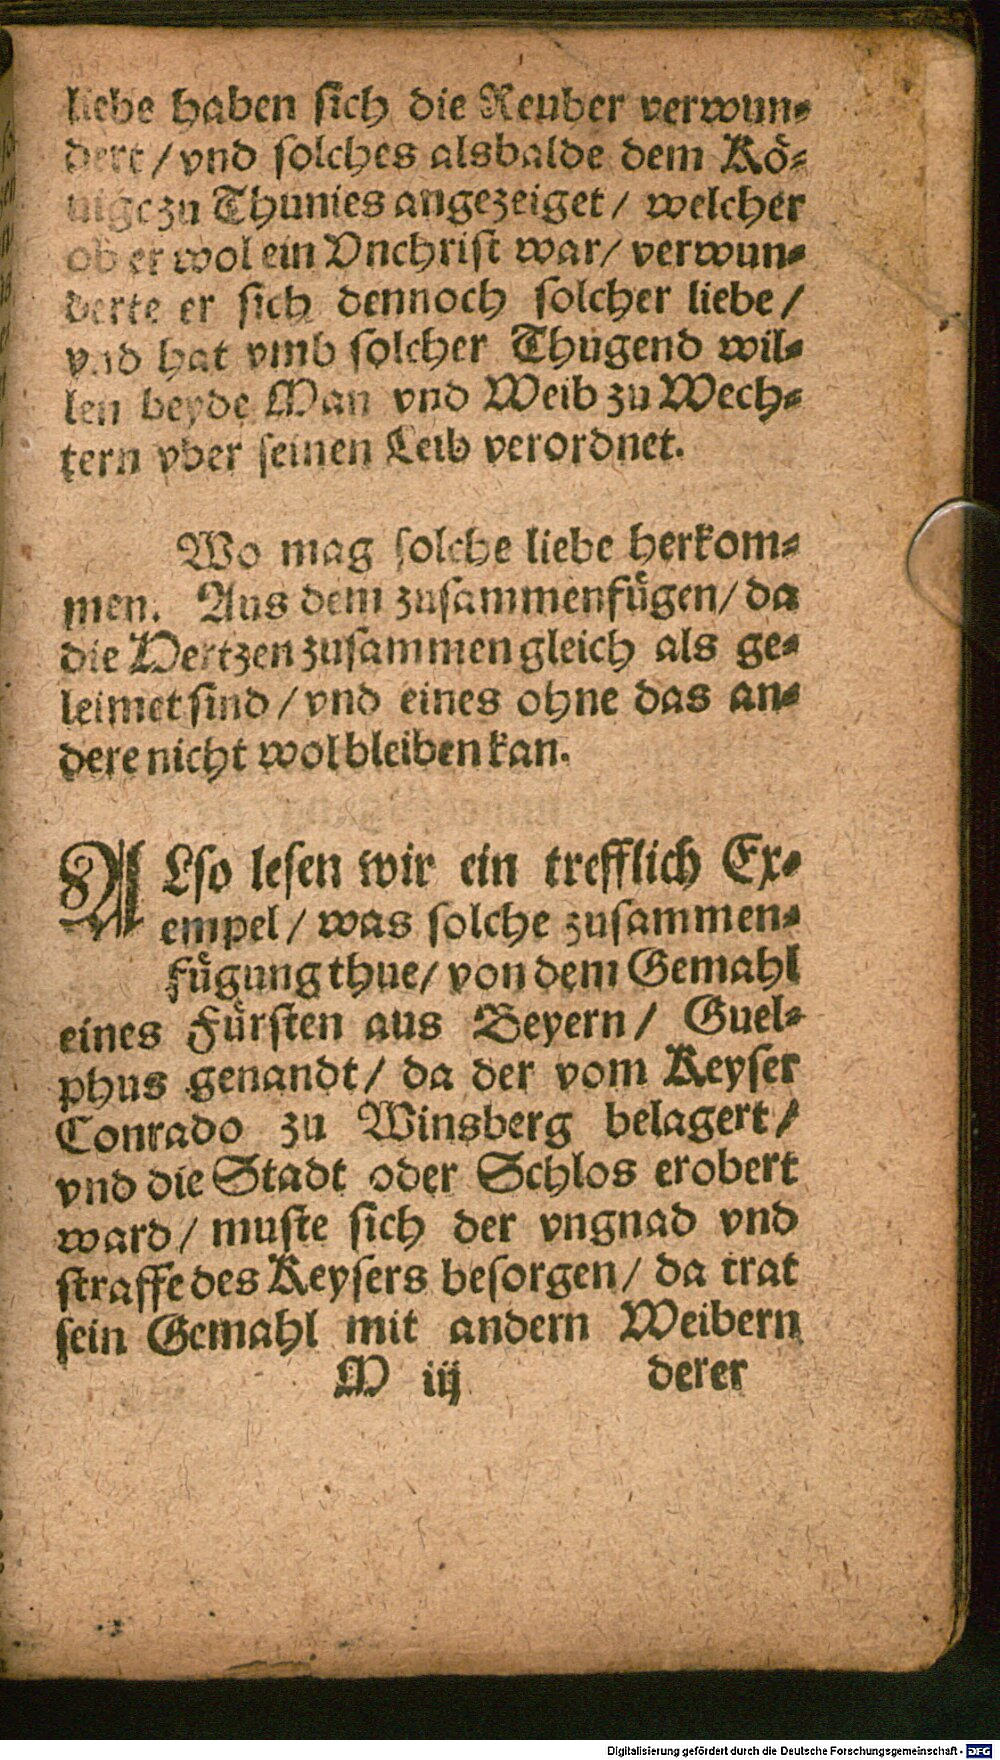 liebe haben sich die Reuber verwun⸗
dert / vnd solches alsbalde dem Kö⸗
nige zu Thunies angezeiget / welcher
ob er wol ein Vnchrist war / verwun⸗
derte er sich dennoch solcher liebe /
vnd hat vmb solcher Thugend wil⸗
len beyde Man vnd Weib zu Wech⸗
tern vber seinen Leib verordnet.
Wo mag solche liebe herkom⸗
men. Aus dem zusammenfügen / da
die Hertzen zusammen gleich als ge⸗
leimet sind / vnd eines ohne das an⸗
dere nicht wol bleiben kan.
ALso lesen wir ein trefflich Ex⸗
empel / was solche zusammen⸗
fügung thue / von dem Gemahl
eines Fürsten aus Beyern / Guel⸗
phus genandt / da der vom Keyser
Conrado zu Winsberg belagert /
vnd die Stadt oder Schlos erobert
ward / muste sich der vngnad vnd
straffe des Keysers besorgen / da trat
sein Gemahl mit andern Weibern
M iij derer
Digitalisierung gefördert durch die Deutsche Forschungsgemeinschaft - DFG